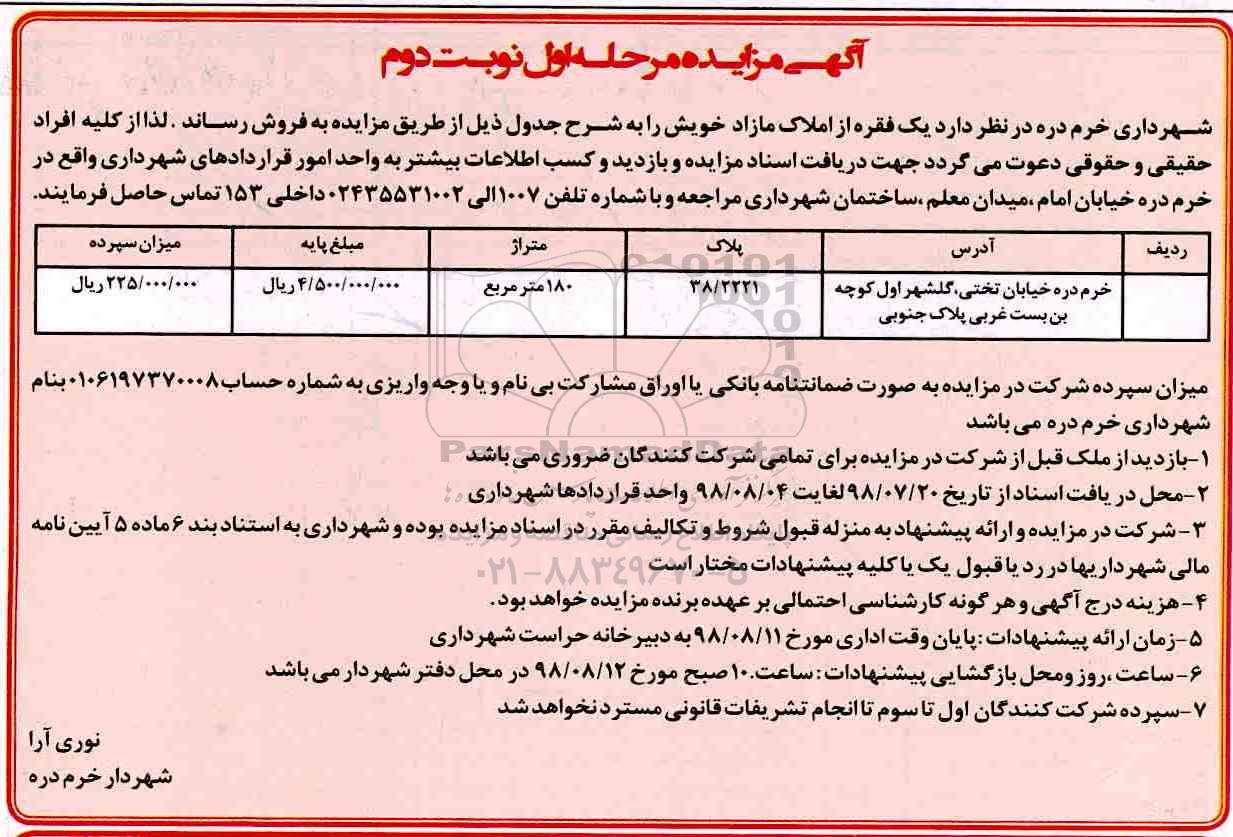 آگهی مزایده مرحله اول نوبت دوم
شهرداری خرم دره در نظر دارد یک فقره از املاک مازاد خویش را به شرح جدول ذیل از طریق مزایده به فروش رساند . لذا از کلیه افراد
حقیقی و حقوقی دعوت می گردد جهت دریافت اسناد مزایده و بازدید و کسب اطلاعات بیشتر به واحد امور قراردادهای شهرداری واقع در
خرم دره خیابان امام ،میدان معلم ،ساختمان شهرداری مراجعه و با شماره تلفن ۱۰۰۷ الی ۰۲۴۳۵۵۳۱۰۰۲ داخلی ۱۵۳ تماس حاصل فرمایند.
ردیف آدرس پلاک متراژ مبلغ پایه میزان سپرده
خرم دره خیابان تختی،گلشهر اول کوچه ۳۸/۲۲۲۱ ۱۸۰ متر مربع ۴/۵۰۰/۰۰۰/۰۰۰ ریال ۲۲۵/۰۰۰/۰۰۰ ریال
بن بست غربی پلاک جنوبی
میزان سپرده شرکت در مزایده به صورت ضمانتنامه بانکی یا اوراق مشارکت بی نام و یا وجه واریزی به شماره حساب ۰۱۰۶۱۹۷۳۷۰۰۰۸ بنام
شهرداری خرم دره می باشد
۱-بازدید از ملک قبل از شرکت در مزایده برای تمامی شرکت کنندگان ضروری می باشد
۲-محل دریافت اسناد از تاریخ ۹۸/۰۷/۲۰ لغایت ۹۸/۰۸/۰۴ واحد قراردادها شهرداری
۳-شرکت در مزایده و ارائه پیشنهاد به منزله قبول شروط و تکالیف مقرر در اسناد مزایده بوده و شهرداری به استناد بند ۶ ماده ۵ آیین نامه
مالی شهرداریها در رد یا قبول یک یا کلیه پیشنهادات مختار است
۴-هزینه درج آگهی و هر گونه کارشناسی احتمالی بر عهده برنده مزایده خواهد بود.
۵-زمان ارائه پیشنهادات :پایان وقت اداری مورخ ۹۸/۰۸/۱۱ به دبیرخانه حراست شهرداری
۶-ساعت ،روز ومحل بازگشایی پیشنهادات : ساعت.۱۰ صبح مورخ ۹۸/۰۸/۱۲ در محل دفتر شهردار می باشد
۷-سپرده شرکت کنندگان اول تا سوم تا انجام تشریفات قانونی مسترد نخواهد شد
نوری آرا
شهردار خرم دره
ParsNamadData
۰۲۱-۸۸۳۴۹۶۷۰-۵